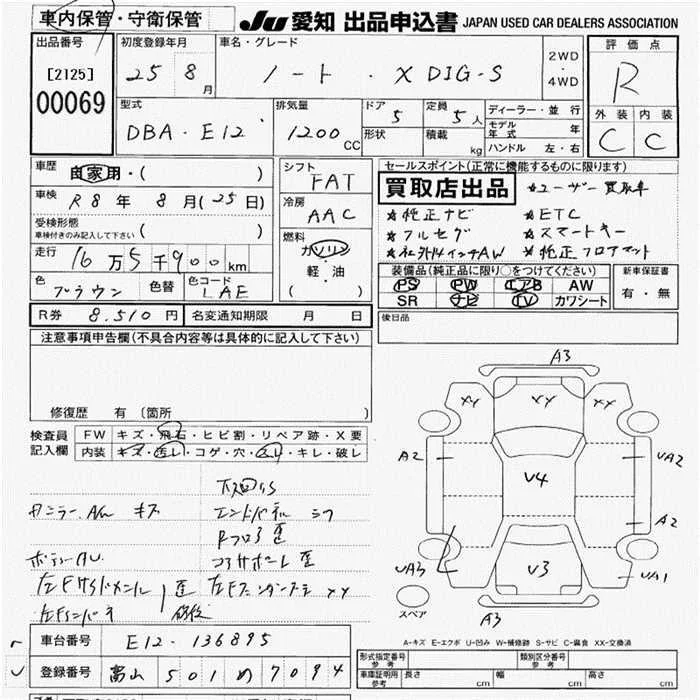 車内保管・守衛保管 JU 愛知 出品申込書 JAPAN USED CAR DEALERS ASSOCIATION
出品番号 初度登録年月 車名・グレード 評価点
[2125] 25 8月 ノート・X DIG-S 2WD・4WD R
00069
型式 排気量 ドア 定員 ディーラー・並行 外装 内装
DBA・E12 1200cc 5 5人 モデル年式 年 C C
形状 積載 kg ハンドル 左・右
車歴 自家用・( ) シフト セールスポイント(正常に機能するものに限ります)
FAT
車検 R8年 8月(25日) 冷房 買取店出品 ★ユーザー買取車
AAC ★純正ナビ ★ETC
受検形態 ★フルセグ ★スマートキー
車検付きのみ記入して下さい( ) 燃料 ★社外14インチAW ★純正フロアマット
走行 16万5千900km ガソリン
軽・油 装備品(純正品に限り〇をつけてください) 新車保証書
色 ブラウン 色替 色コード LAE ( ) PS PW エアB AW 有・無
SR ナビ TV カワシート
R券 8,510円 名変通知期限 月 日 後日品
注意事項申告欄(不具合内容等は具体的に記入して下さい)
修復歴 有(箇所 )
検査員記入欄 FW キズ・飛石・ヒビ割・リペア跡・X要
内装 キズ・汚レ・コゲ・穴・スレ・キレ・破レ
下廻りS
エンドパネル
歪
コアサポート 歪
A3
XY XY XY
A2 V4 UA2
A2
UA3 V3 UA1
スペア A3
A-キズ E-エクボ U-凹み W-補修跡 S-サビ C-腐食 XX-交換済
車台番号 E12-136895
登録番号 富山 501 め 7094
形式指定番号 参考 類別区分番号 参考
車庫証明用 参考 長さ cm 幅 cm 高さ cm